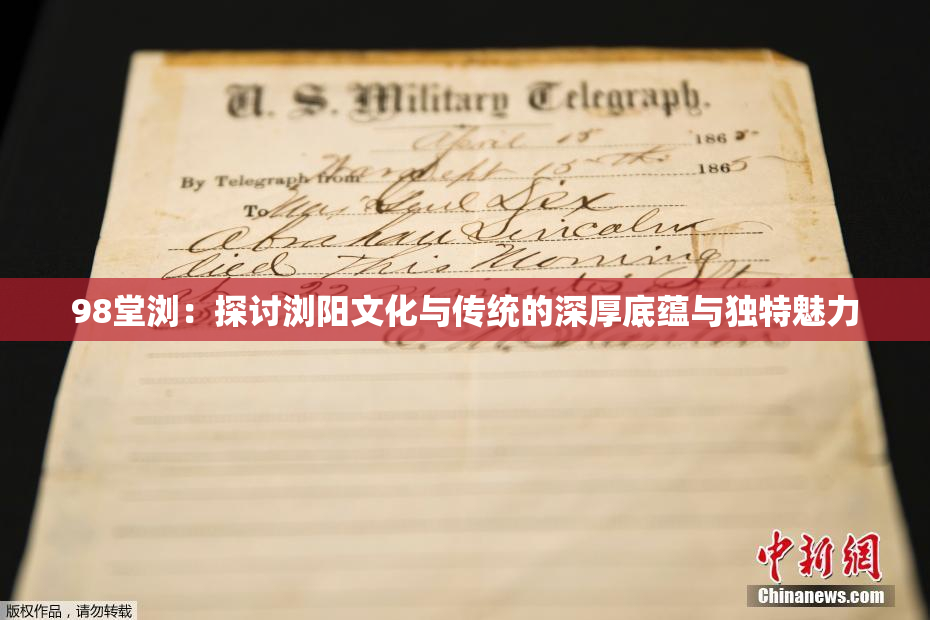 U. S. Military Telegraph.
April 15 1865
By Telegraph from War Dept 15th 1865
To Maj Genl Dix
Abraham Lincoln
died This Morning
22 minutes after
98堂浏：探讨浏阳文化与传统的深厚底蕴与独特魅力
E. M. Stanton
中新网
Chinanews.com
版权作品，请勿转载